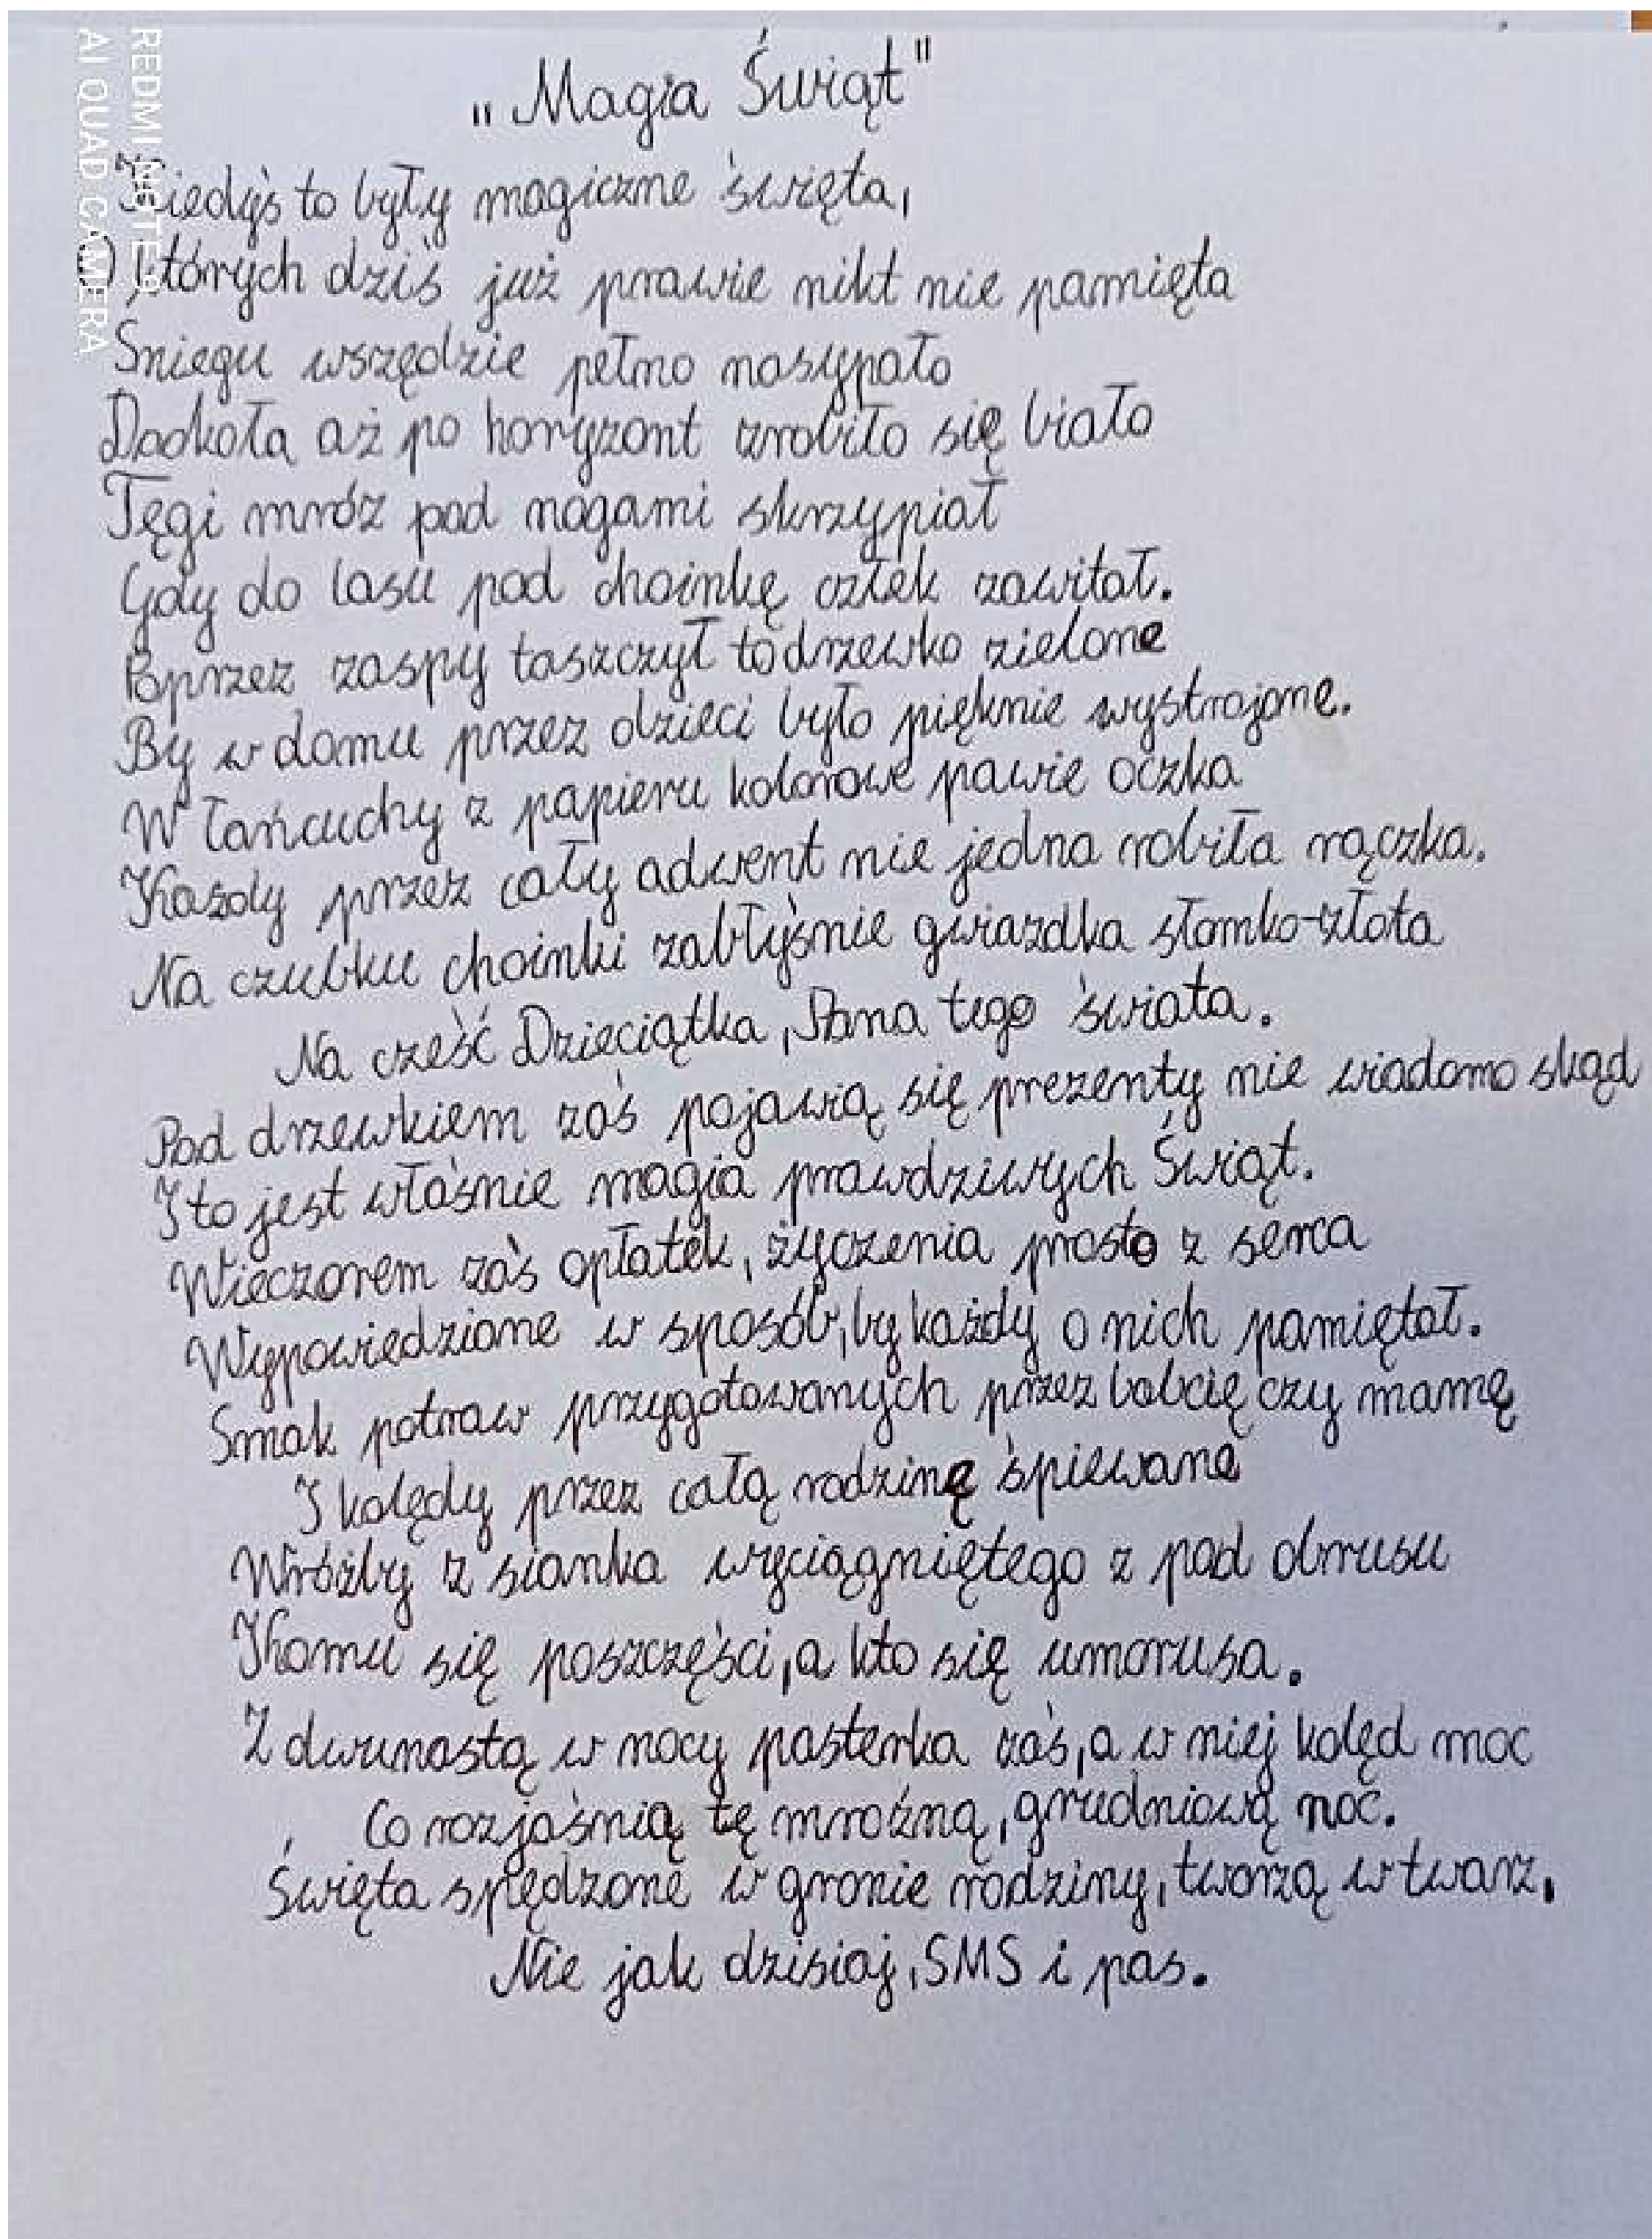 „Magia Świąt"
Kiedyś to były magiczne święta,
O których dziś już prawie nikt nie pamięta
Śniegu wszędzie pełno nasypało
Dookoła aż po horyzont zrobiło się biało
Tęgi mróz pod nogami skrzypiał
Gdy do lasu pod choinkę człek zawitał.
Poprzez zaspy taszczył to drzewko zielone
By w domu przez dzieci było pięknie wystrojone.
W łańcuchy z papieru kolorowe pawie oczka
Każdy przez cały adwent nie jedna robiła rączka.
Na czubku choinki zabłyśnie gwiazdka słomko-złota
Na cześć Dzieciątka, Pana tego świata.
Pod drzewkiem zaś pojawią się prezenty nie wiadomo skąd
I to jest właśnie magia prawdziwych Świąt.
Wieczorem zaś opłatek, życzenia prosto z serca
Wypowiedziane w sposób, by każdy o nich pamiętał.
Smak potraw przygotowanych przez babcię czy mamę
I kolędy przez całą rodzinę śpiewane
Wróżby z sianka wyciągniętego z pod obrusu
Komu się poszczęści, a kto się umorusa.
Z dwunastą w nocy pasterka zaś, a w niej kolęd moc
Co rozjaśnią tę mroźną, grudniową noc.
Święta spędzone w gronie rodziny, twarzą w twarz,
Nie jak dzisiaj, SMS i pas.
REDMI NOTE 9
AI QUAD CAMERA